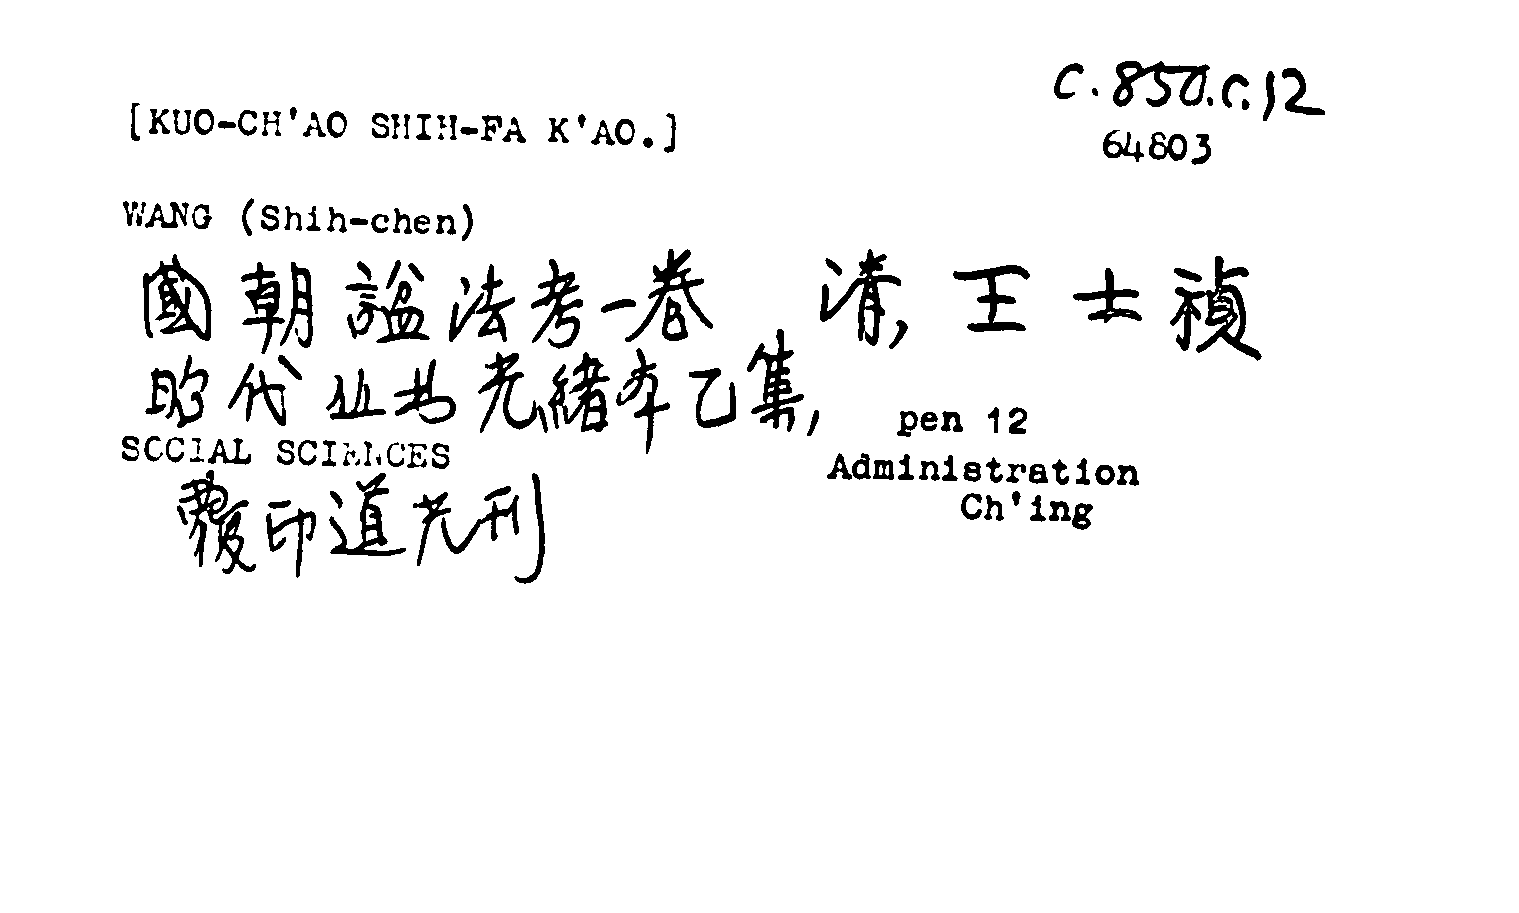 C.850.c.12
[KUO-CH'AO SHIH-FA K'AO.]
64803
WANG (Shih-chen)
國朝諡法考一卷 清, 王士禎
昭代丛书光緒本乙集, pen 12
SOCIAL SCIENCES
Administration
Ch'ing
覆印道光刊